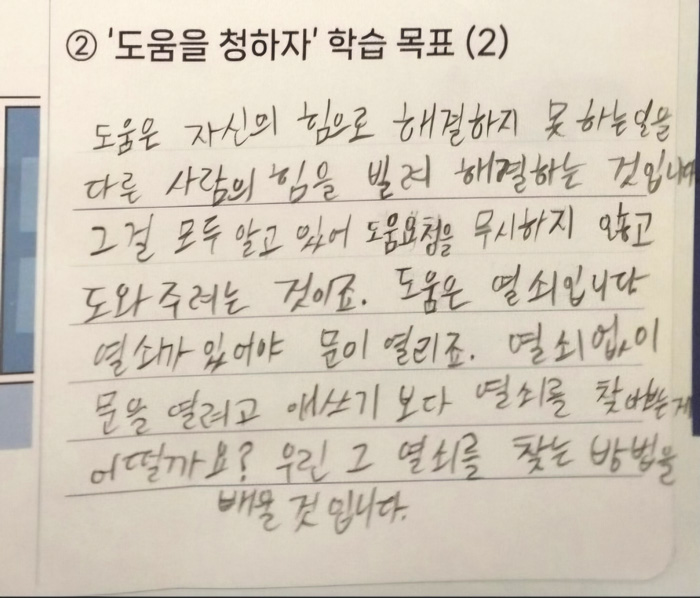 ② '도움을 청하자' 학습 목표 (2)
도움은 자신의 힘으로 해결하지 못하는일을
다른 사람의 힘을 빌려 해결하는 것입니다
그걸 모두 알고 있어 도움요청을 무시하지 않고
도와주려는 것이죠. 도움은 열쇠입니다
열쇠가 있어야 문이 열리죠. 열쇠없이
문을 열려고 애쓰기 보다 열쇠를 찾아보는게
어떨까요? 우린 그 열쇠를 찾는 방법을
배울 것 입니다.